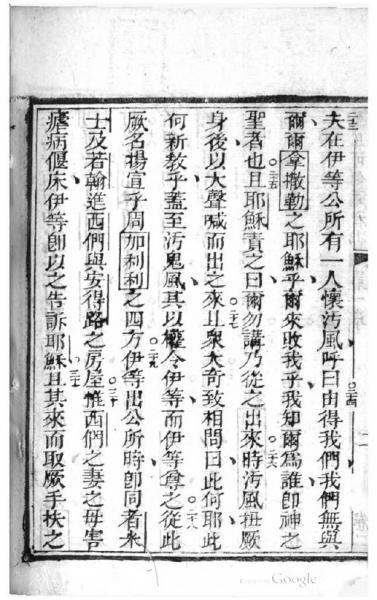 夫在伊等公所有一人懷汚風呼曰由得我們我們無與
爾爾拿撒勒之耶穌乎爾來敗我乎我知爾為誰即神之
聖者也且耶穌責之曰爾勿講乃從之出來時汚風扭厥
身後以大聲喊而出之來且衆大奇致相問曰此何耶此
何新教乎蓋至汚鬼風其以權令伊等而伊等尊之從此
厥名揚宣于周加利利之四方伊等出公所時即同者米
士及若翰進西們與安得路之房屋惟西們之妻之母害
瘧病偃床伊等即以之告訴耶穌且其來而取厥手扶之
Google